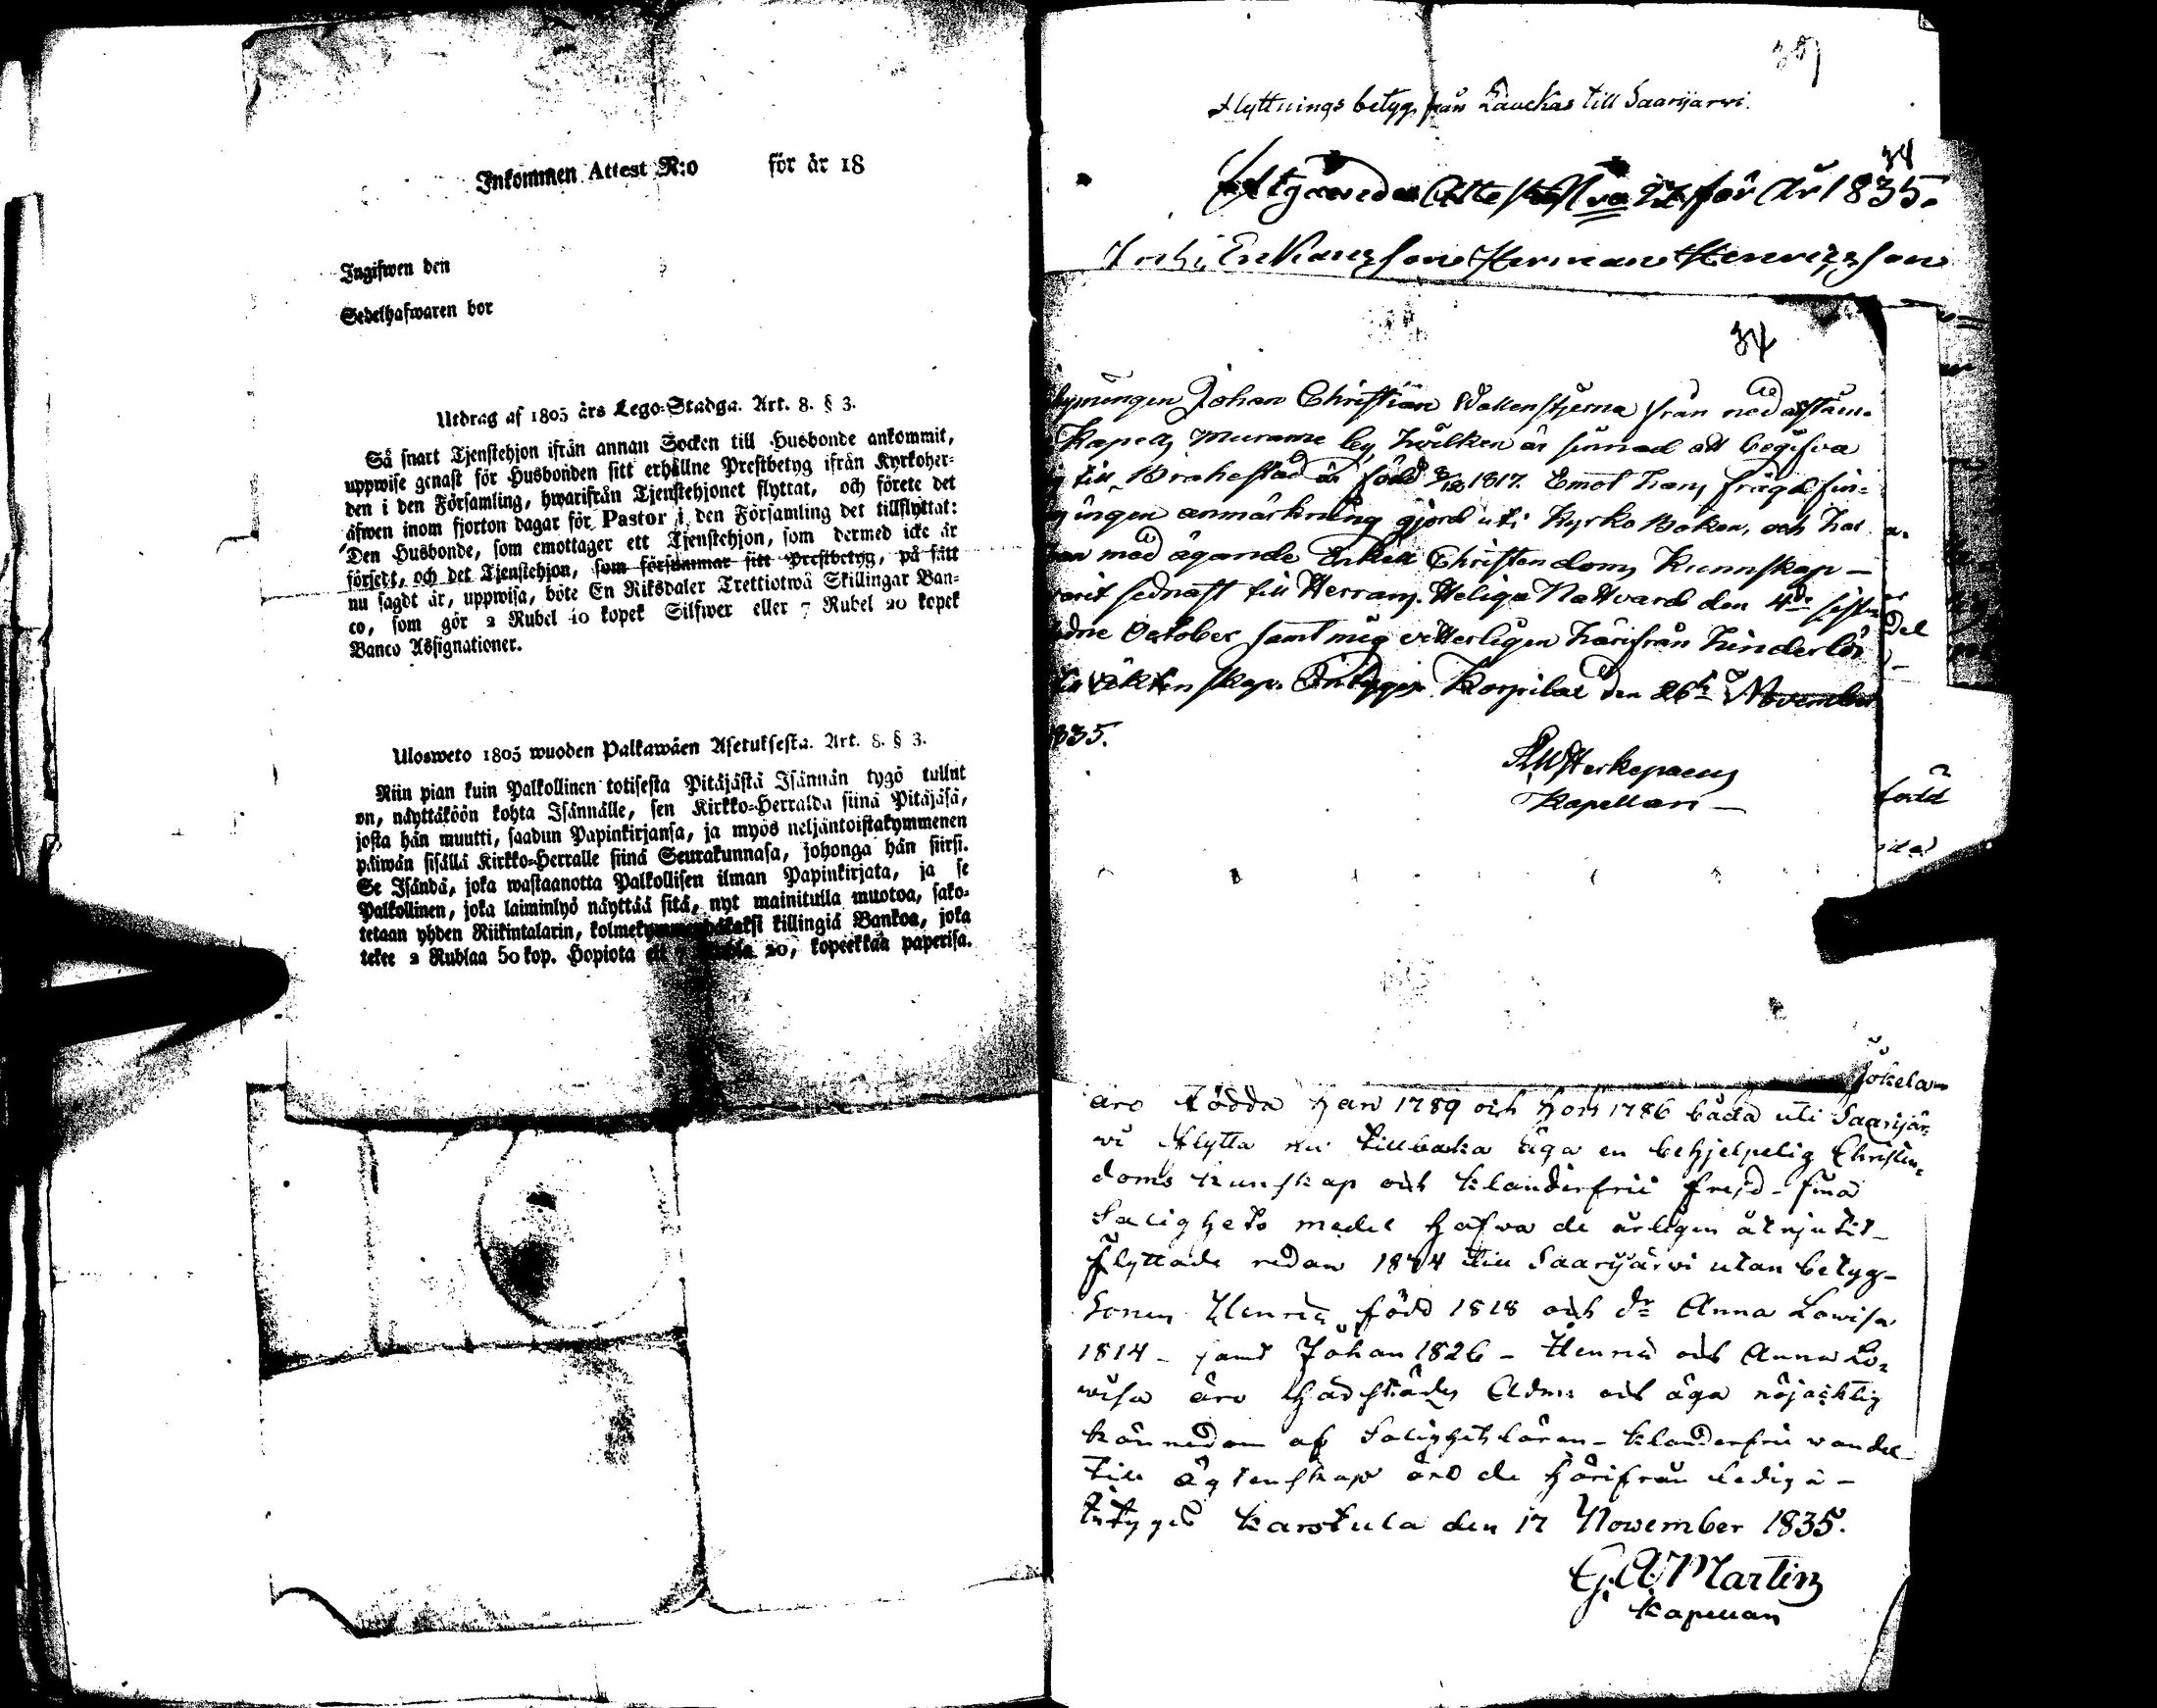 Inkommen Attest N:o för år 18
Ingifwen den
Sedelhafwaren bor
Utdrag af 1805 års Lego-Stadga. Art. 8. § 3.
Så snart Tjenstehjon ifrån annan Socken till Husbonde ankommit,
uppwise genast för Husbonden sitt erhållne Prestbetyg ifrån Kyrkoher-
den i den Församling, hwarifrån Tjenstehjonet flyttat, och förete det
äfwen inom fjorton dagar för Pastor i den Församling det tillflyttat:
Den Husbonde, som emottager ett Tjenstehjon, som dermed icke är
försedt, och det Tjenstehjon, som försummar sitt Prestbetyg, på sätt
nu sagdt är, uppwisa, böte En Riksdaler Trettiotwå Skillingar Ban-
co, som gör 2 Rubel 10 kopek Silfwer eller 7 Rubel 20 kopek
Banco Assignationer.
Ulosweto 1805 wuoden Palkawäen Asetuksesta. Art. 8. § 3.
Niin pian kuin Palkollinen totisesta Pitäjästä Isännän tygö tullut
on, näyttäköön kohta Isännälle, sen Kirkko-Herralda siinä Pitäjäsä,
josta hän muutti, saadun Papinkirjansa, ja myös neljäntoistakymmenen
päiwän sisällä Kirkko-Herralle siinä Seurakunnasa, johonga hän siirsi.
Se Isändä, joka wastaanotta Palkollisen ilman Papinkirjata, ja se
Palkollinen, joka laiminlyö näyttää sitä, nyt mainitulla muotoa, sako-
tetaan yhden Riikintalarin, kolmekymmendäkaksi killingiä Bankoa, joka
tekee 2 Rublaa 50 kop. Hopiota 20, kopeekkaa paperisa.
Flyttnings betyg från Lauckas till Saarijärwi.
34
för År 1835.
Herman Henricsson
34
Johan Christian Wallenstjerna från
Kapell Murame by, hwilken är sinnad att begifva
till Brahestad är född 1817. Emot hans frägd fin-
ingen anmärkning gjord uti Kyrko Boken, och har
med ägande Enkell Christendoms Kunnskap –
sednast till Herrans Heliga Nattvard den 4de
October samt mig vitterligen härifrån hinderlös
Äktenskap. Betygar Korpilax den 26te November
1835.
Kapellan –
född
del
Jokelan
äro Födda han 1789 och hon 1786 båda uti Saarijär-
wi Flytta nu tillbaka äga en behjelpelig Christen-
doms kunskap och klanderfrii frejd – sina
Salighets medel hafwa de årligen åtnjutit –
Flyttade redan 1834 till Saarijärwi utan betyg –
Sonen Henric född 1818 och dr Anna Lowisa
1814 – samt Johan 1826 – Henric och Anna Lo-
wisa äro Adm: och äga nöjachtig
kännedom af Salighets läran – klanderfrii wandel
till ägtenskap äro de härifrån lediga –
Karstula den 17 November 1835.
G. A. Martin
Kapellan